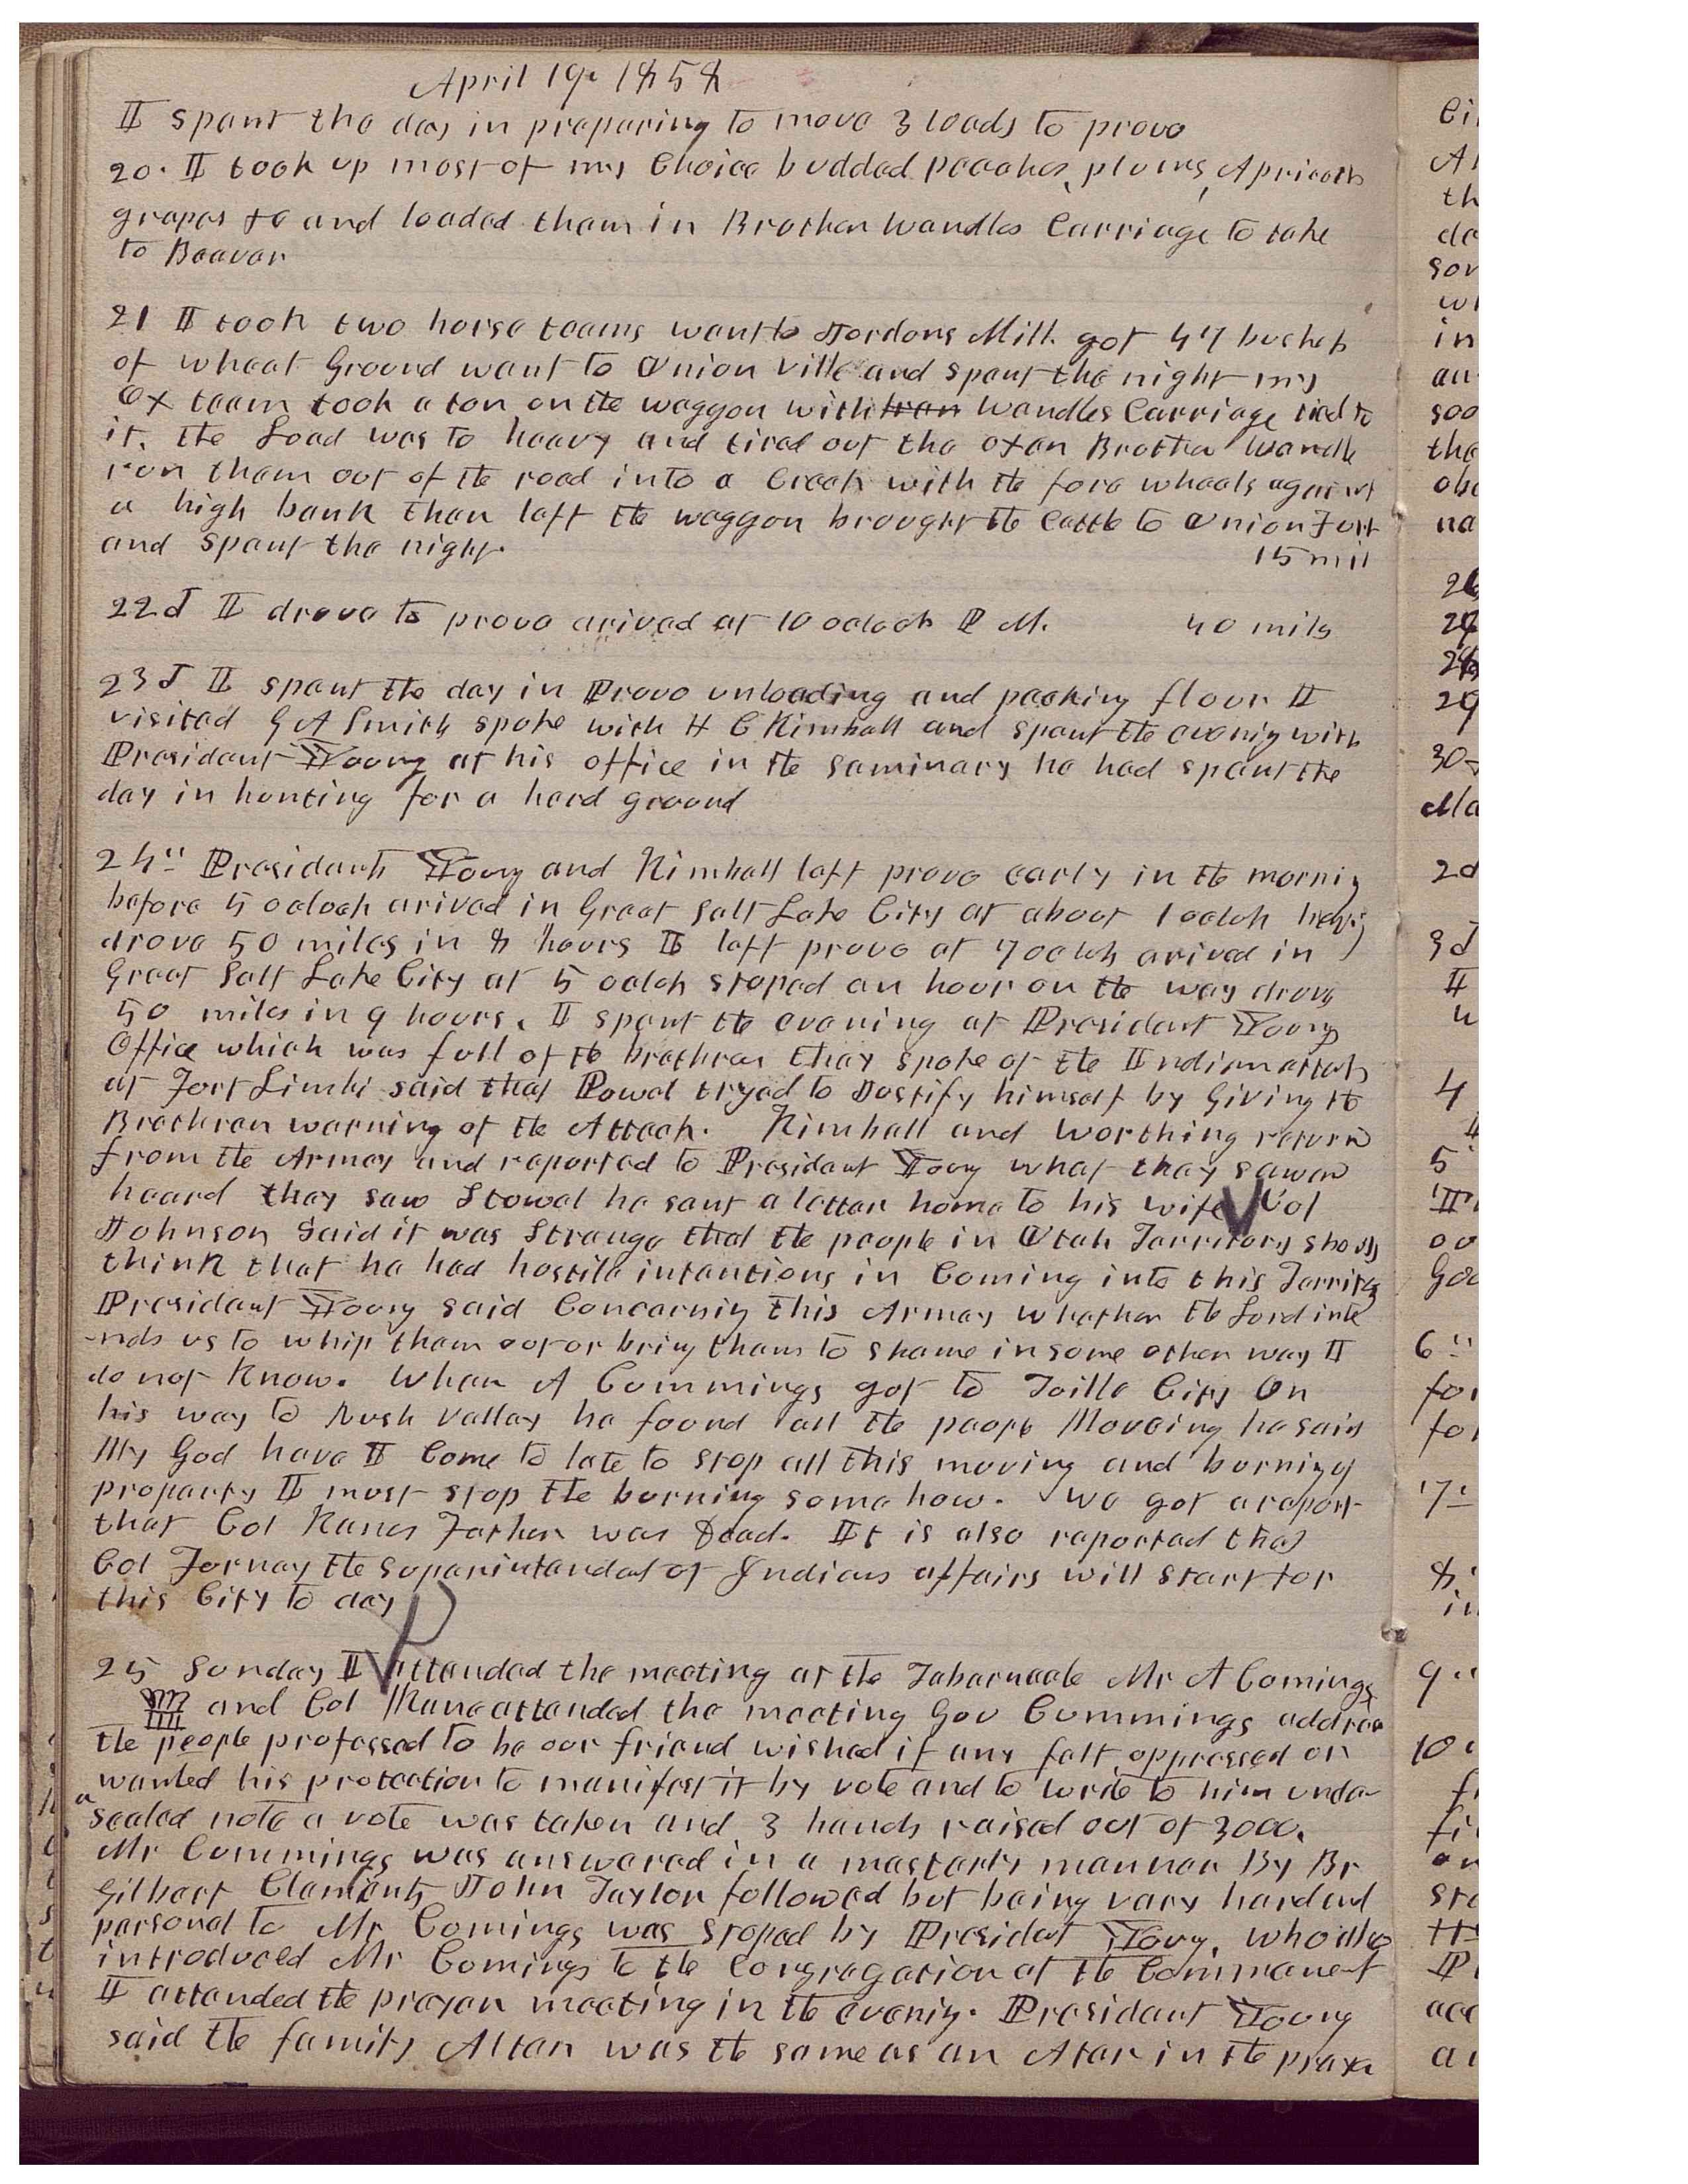 April 19, 1858
I spent the day in preparing to move 3 loads to provo
20. I took up most of my Choice budded peaches, plums, Apricots
grapes &c and loaded them in Brother Wandles Carriage to take
to Beaver
21 I took two horse teams went to Jordons Mill got 47 bushels
of wheat Ground went to Union ville and spent the night my
Ox team took a ton on the waggon with Wandles Carriage tied to
it. the Load was to heavy and tired out the oxen Brother Wandle
run them out of the road into a Creek with the fore wheels against
a high bank then left the waggon brought the Cattle to Union Fort
and spent the night. 15 mil
22d I drove to provo arived at 10 oclock P M. 40 mils
23d I spent the day in Provo unloading and packing flour I
visited G A Smith spoke with H C Kimball and spent the evenig with
President Young at his office in the Seminary he had spent the
day in hunting for a herd ground
24" Presidents Young and Kimball left provo early in the mornig
before 5 oclock arived in Great Salt Lake City at about 1 oclok havig
drove 50 miles in 8 hours I left provo at 7 oclok arived in
Great Salt Lake City at 5 oclok stoped an hour on the way drove
50 miles in 9 hours. I spent the evening at President Youngs
Office which was full of the brethren they spoke of the Indian attack
at Fort Limhi said that Powel tryed to Justify himself by Giving the
Brethren warning of the Attack. Kimball and Worthing return
from the Armey and reported to President Young what they saw or
heard they saw Stowel he sent a letter home to his wife Col
Johnson Said it was Strange that the people in Utah Territory should
think that he had hostile intentions in Coming into this Territy
President Young said Concernig this Armey whether the Lord inte
-nds us to whip them out or bring them to shame in some other way I
do not Know. When A Cummings got to Toille City On
his way to Rush Valley he found all the people Moveing he said
My God have I Come to late to stop all this moving and burnig of
property I must stop the burning some how. We got a report
that Col Kanes Father was Dead. It is also reported that
Col Forney the Superintendat of Indians affairs will start for
this City to day
25 Sunday I attended the meeting at the Tabernacle Mr A Comings
and Col Kane attended the meeting Gov Cummings address
the people professed to be our friend wished if any felt oppressed or
wanted his protection to manifest it by vote and to write to him under
a sealed note a vote was taken and 3 hands raised out of 3000.
Mr Cummings was answered in a masterly manner By Br
Gilbert Clements John Taylor followed but being vary hard and
personal to Mr Comings was stoped by President Young, who also
introduced Mr Comings to the Congregation at the Commanect
I attended the prayer meeting in the evenig. President Young
said the family Alter was the same as an Altar in the prayer